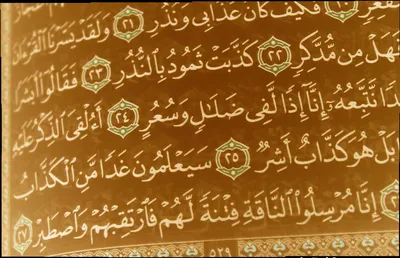 فَكَيْفَ كَانَ عَذَابِي وَنُذُرِ ٢١ وَلَقَدْ يَسَّرْنَا ٱلْقُرْءَانَ
مِن مُّدَّكِرٍ ٢٢ كَذَّبَتْ ثَمُودُ بِٱلنُّذُرِ ٢٣ فَقَالُوٓا۟ أَبَشَرًا
نَّتَّبِعُهُۥٓ إِنَّآ إِذًا لَّفِى ضَلَٰلٍ وَسُعُرٍ ٢٤ أَءُلْقِىَ ٱلذِّكْرُ عَلَيْهِ
بَلْ هُوَ كَذَّابٌ أَشِرٌ ٢٥ سَيَعْلَمُونَ غَدًا مَّنِ ٱلْكَذَّابُ
إِنَّا مُرْسِلُوا۟ ٱلنَّاقَةِ فِتْنَةً لَّهُمْ فَٱرْتَقِبْهُمْ وَٱصْطَبِرْ ٢٧
٥٢٩